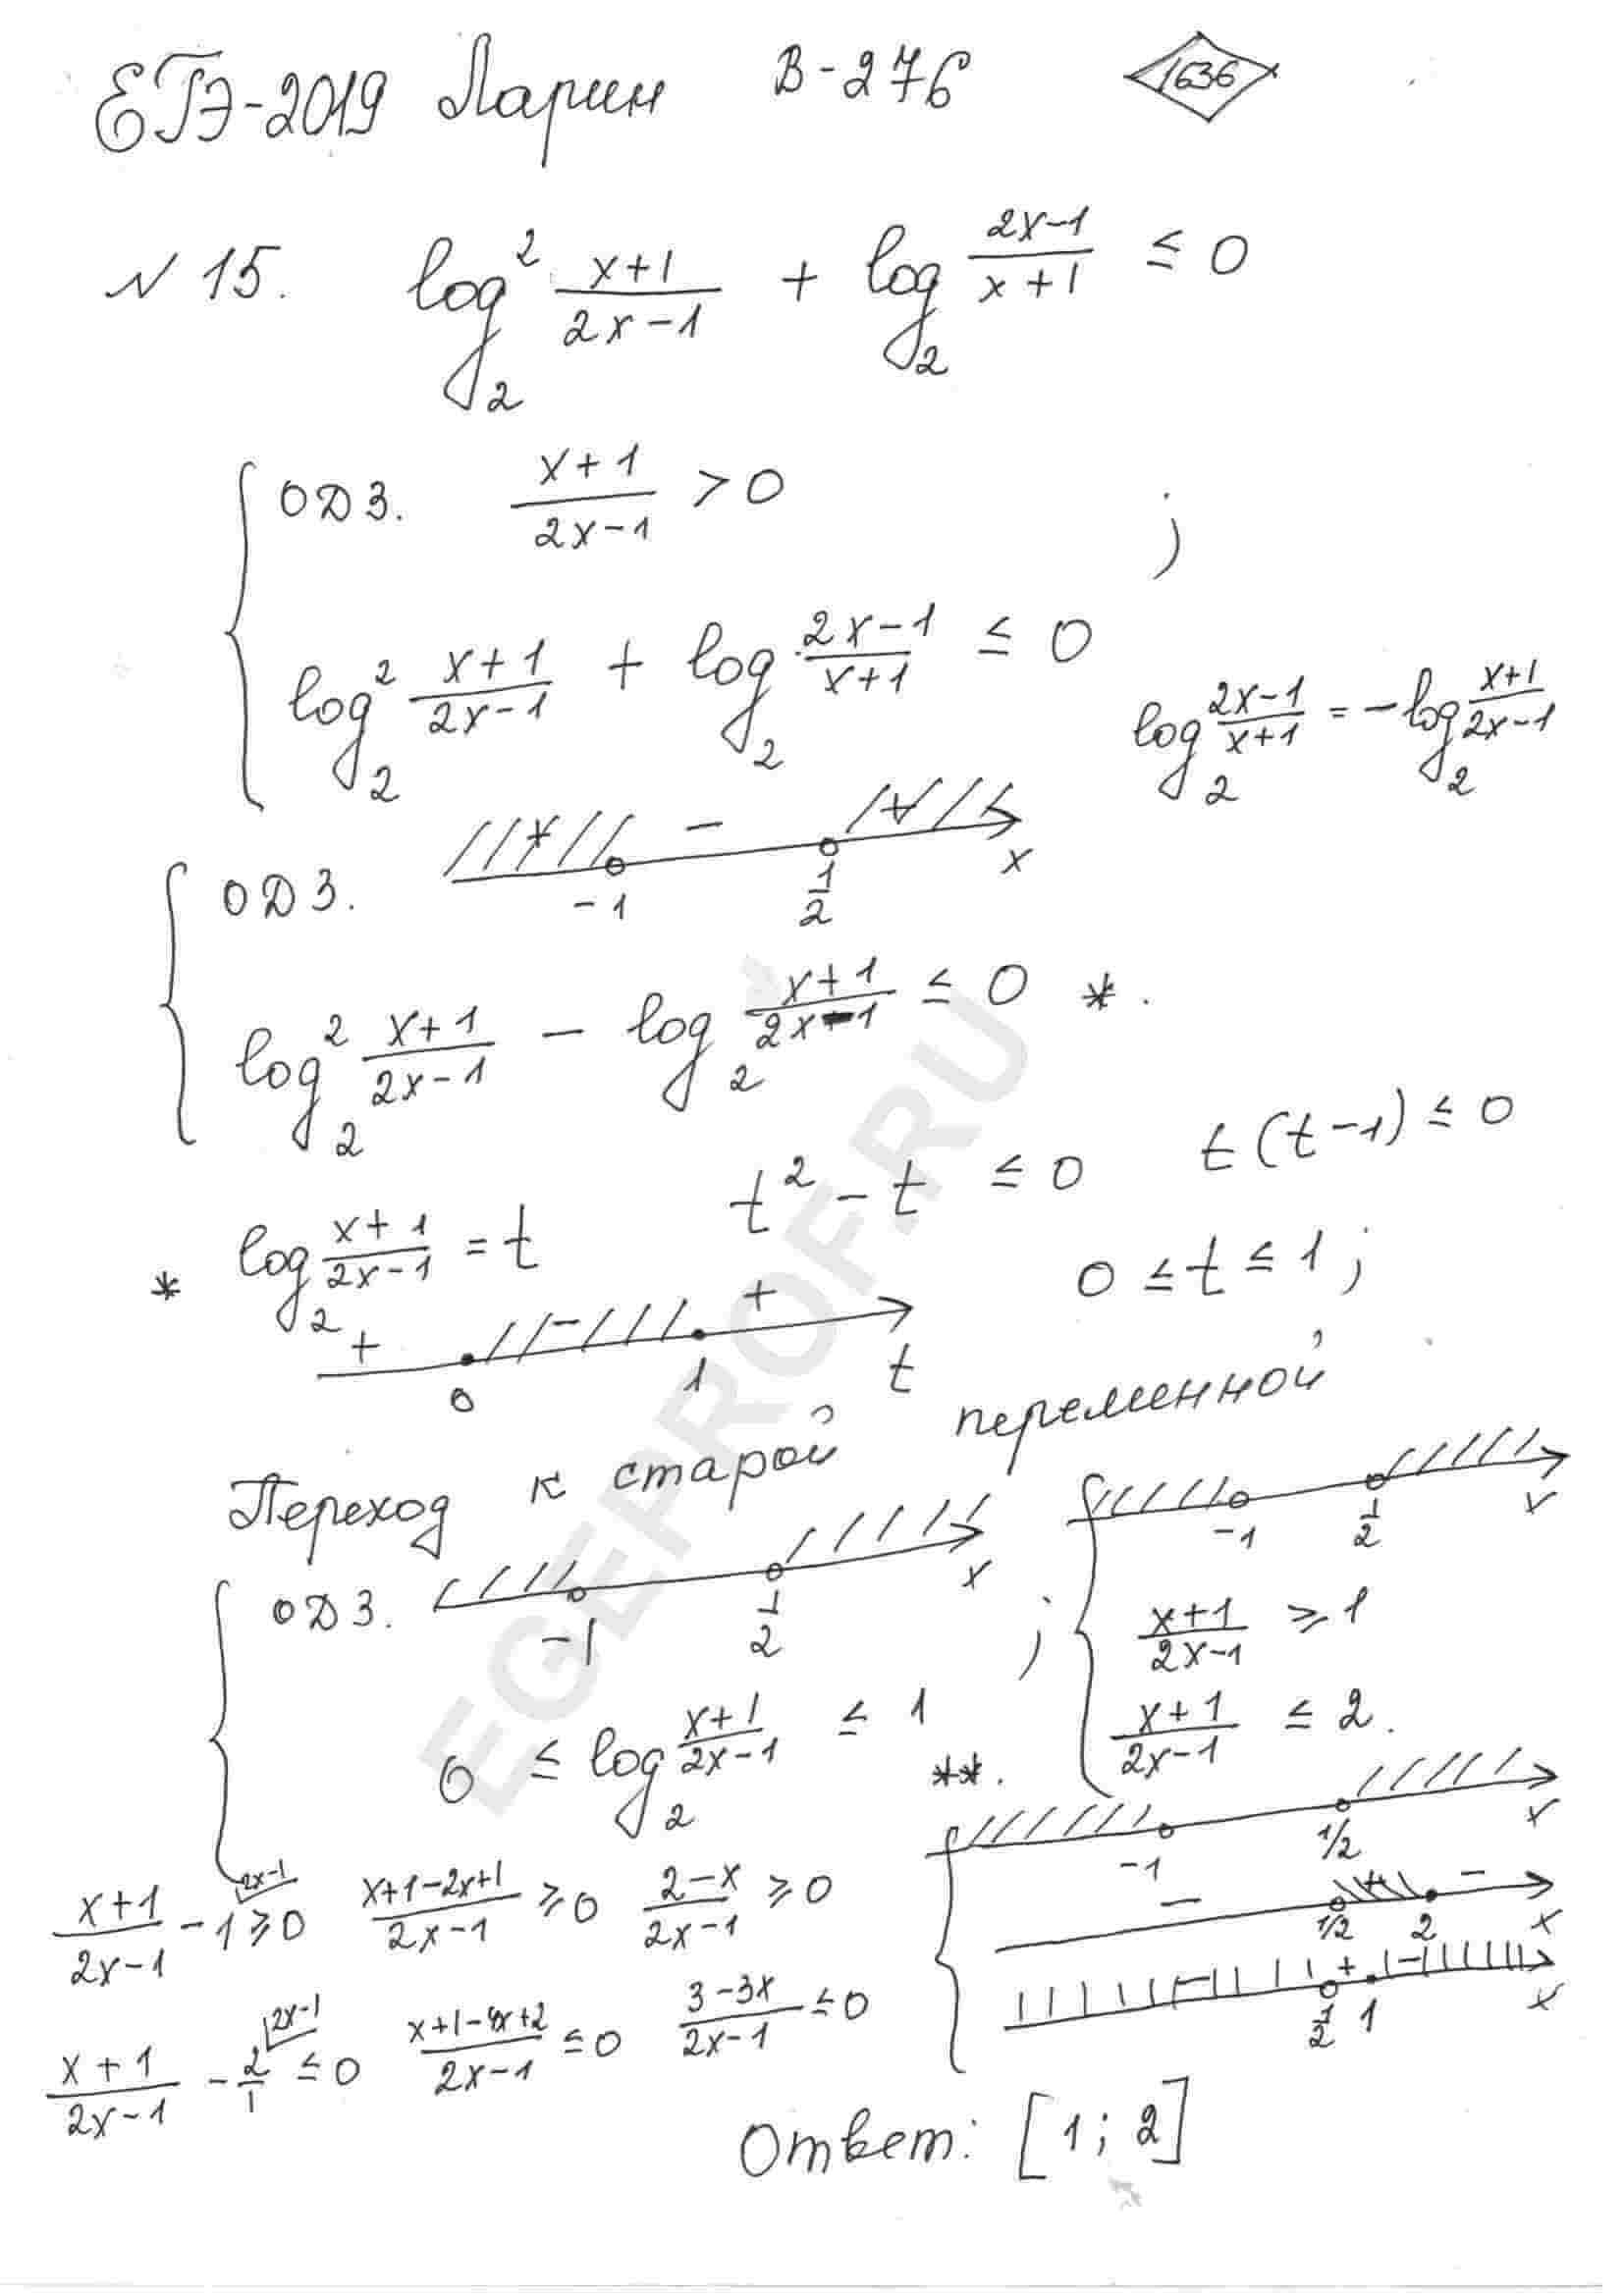 ЕГЭ-2019 Ларин В-276 1636
№ 15. log₂² (x+1)/(2x-1) + log₂ (2x-1)/(x+1) ≤ 0
ОДЗ. (x+1)/(2x-1) > 0 ;
log₂² (x+1)/(2x-1) + log₂ (2x-1)/(x+1) ≤ 0
log₂ (2x-1)/(x+1) = -log₂ (x+1)/(2x-1)
ОДЗ. + -1 - 1/2 + x
log₂² (x+1)/(2x-1) - log₂ (x+1)/(2x-1) ≤ 0 *.
* log₂ (x+1)/(2x-1) = t t² - t ≤ 0 t(t-1) ≤ 0
+ 0 - 1 + t 0 ≤ t ≤ 1 ;
Переход к старой переменной
ОДЗ. -1 1/2 x ;
0 ≤ log₂ (x+1)/(2x-1) ≤ 1 **.
-1 1/2 x
(x+1)/(2x-1) ≥ 1
(x+1)/(2x-1) ≤ 2.
-1 1/2 x
- 1/2 + 2 - x
- 1/2 + 1 - x
(x+1)/(2x-1) - 1 2x-1 ≥ 0 (x+1-2x+1)/(2x-1) ≥ 0 (2-x)/(2x-1) ≥ 0
(x+1)/(2x-1) - 2/1 2x-1 ≤ 0 (x+1-4x+2)/(2x-1) ≤ 0 (3-3x)/(2x-1) ≤ 0
Ответ: [1; 2]
EGEPROF.RU